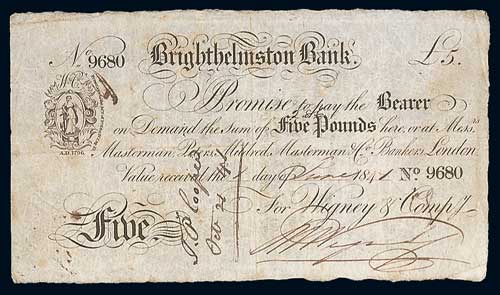 No 9680 Brighthelmston Bank. £5.
W & Co
Promise to pay the Bearer
on Demand the Sum of Five Pounds here, or at Messrs
Masterman, Peters, Mildred, Masterman & Co. Bankers, London.
A.D. 1796.
Value received the 1 day of June 1841 No 9680
For Wigney & Compy
Five.
Cooper
Oct